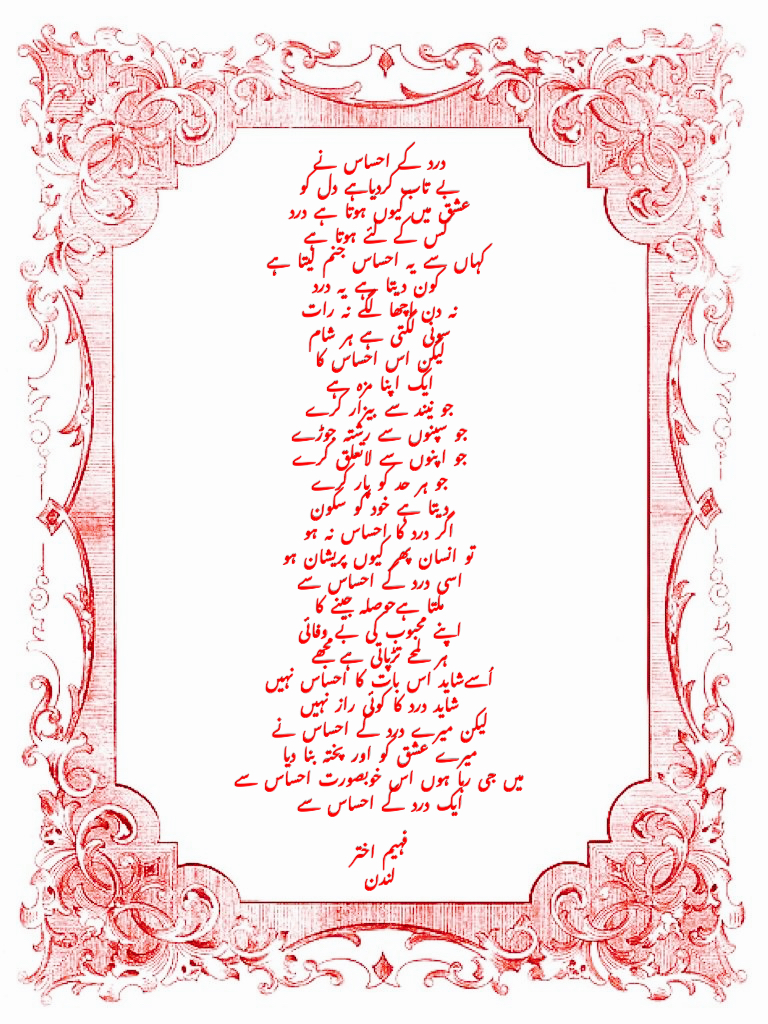 درد کے احساس نے
بے تاب کردیاہے دل کو
عشق میں کیوں ہوتا ہے درد
کس کے لئے ہوتا ہے
کہاں سے یہ احساس جنم لیتا ہے
کون دیتا ہے یہ درد
نہ دن اچھا لگے نہ رات
سونی لگتی ہے ہر شام
لیکن اس احساس کا
ایک اپنا مزہ ہے
جو نیند سے بیزار کرے
جو سپنوں سے رشتہ جوڑے
جو اپنوں سے لاتعلق کرے
جو ہر حد کو پار کرے
دیتا ہے خود کو سکون
اگر درد کا احساس نہ ہو
تو انسان پھر کیوں پریشان ہو
اسی درد کے احساس سے
ملتا ہےحوصلہ جینے کا
اپنے محبوب کی بے وفائی
ہر لمحے تڑپاتی ہے مجھے
اُسےشاید اس بات کا احساس نہیں
شاید درد کا کوئی راز نہیں
لیکن میرے درد کے احساس نے
میرے عشق کو اور پختہ بنا دیا
میں جی رہا ہوں اس خوبصورت احساس سے
ایک درد کے احساس سے
فہیم اختر
لندن